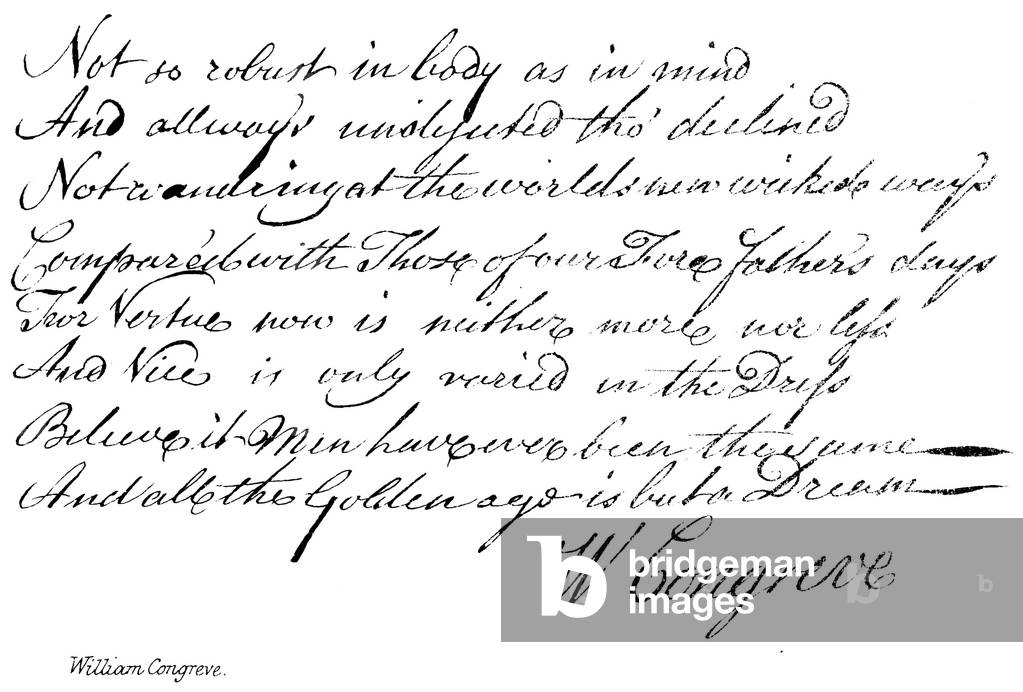 Not so robust in body as in mind
And allways undejected tho' declined
Not wandring at the worlds new wicked ways
Compar'd with Those of our Fore father's days
For Vertue now is neither more nor less
And Vice is only varied in the Dress
Believe it Men have ever been the same
And all the Golden age is but a Dream
W Congreve
bridgeman
images
b
b
b
William Congreve.